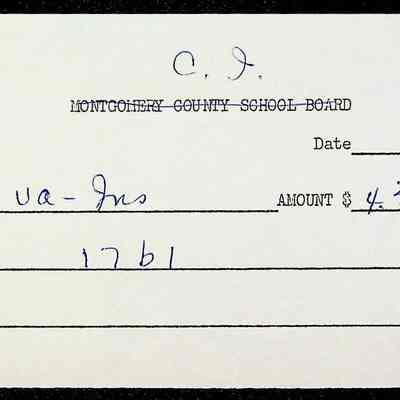 C. I.
MONTGOMERY COUNTY SCHOOL BOARD
Date
va - Ins AMOUNT $ 4.2
1761